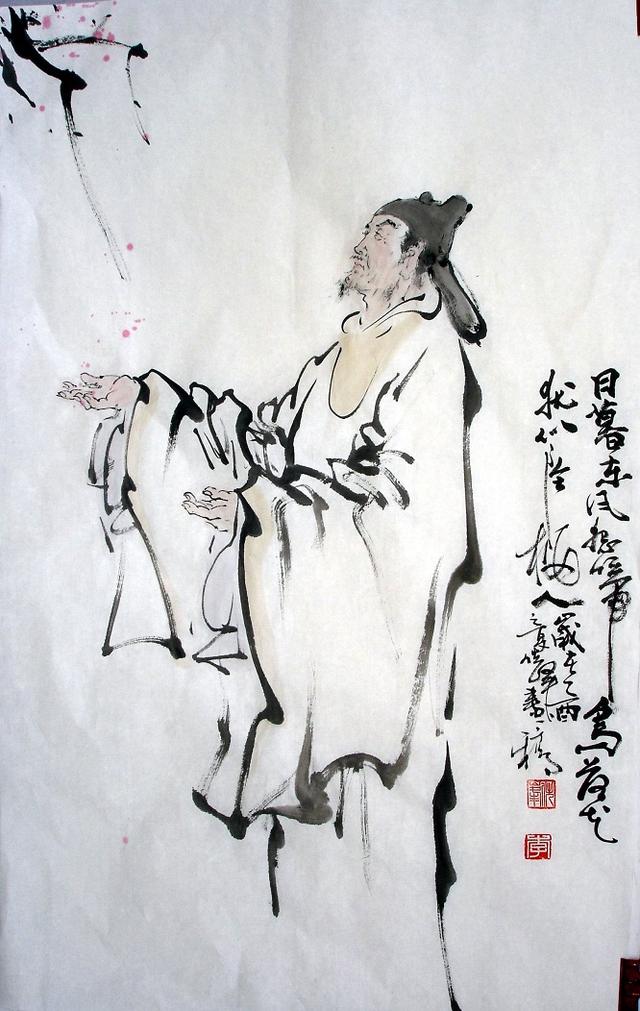 日暮东风怨啼鸟落花
犹似坠楼人
岁在乙酉
画稿